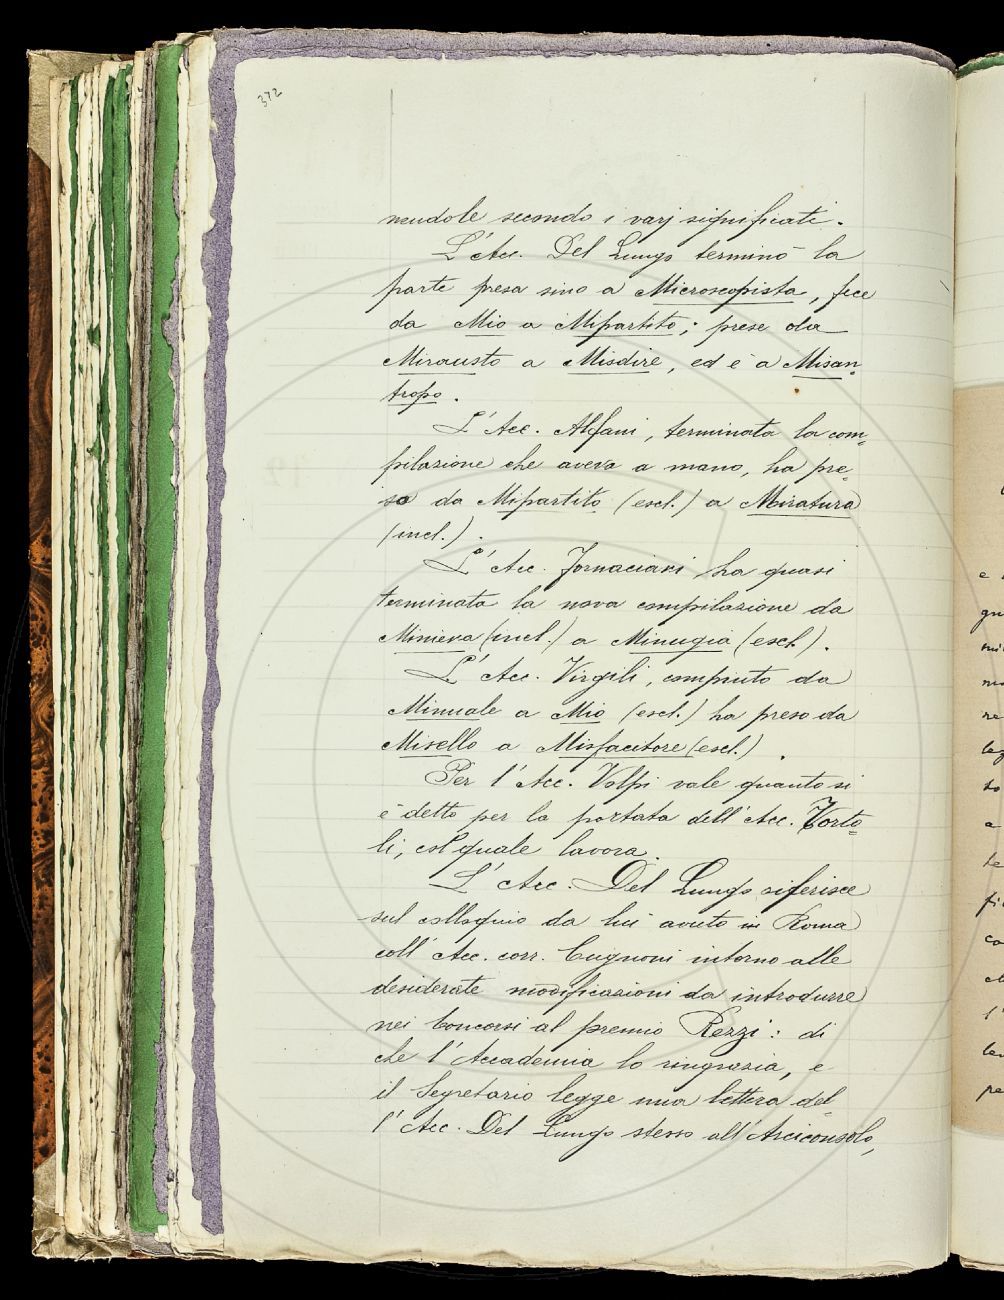 372
nendole secondo i varj significati.
L'Acc. Del Lungo terminò la
parte presa sino a Microscopista, fece
da Mio a Mipartito; prese da
Mirausto a Misdire, ed è a Misan=
tropo.
L'Acc. Alfani, terminata la com=
pilazione che aveva a mano, ha pre=
so da Mipartito (escl.) a Miratura
(incl.).
L'Acc. Fornaciari ha quasi
terminata la nova compilazione da
Miniera (incl.) a Minugia (escl.).
L'Acc. Virgili, compiuto da
Minuale a Mio (escl.) ha preso da
Misello a Misfacitore (escl.).
Per l'Acc. Volpi vale quanto si
è detto per la portata dell'Acc. Torto=
li, col quale lavora.
L'Acc. Del Lungo riferisce
sul colloquio da lui avuto in Roma
coll'Acc. corr. Cugnoni intorno alle
desiderate modificazioni da introdurre
nei Concorsi al premio Rezzi: di
che l'Accademia lo ringrazia, e
il Segretario legge una lettera del=
l'Acc. Del Lungo stesso all'Arciconsolo,